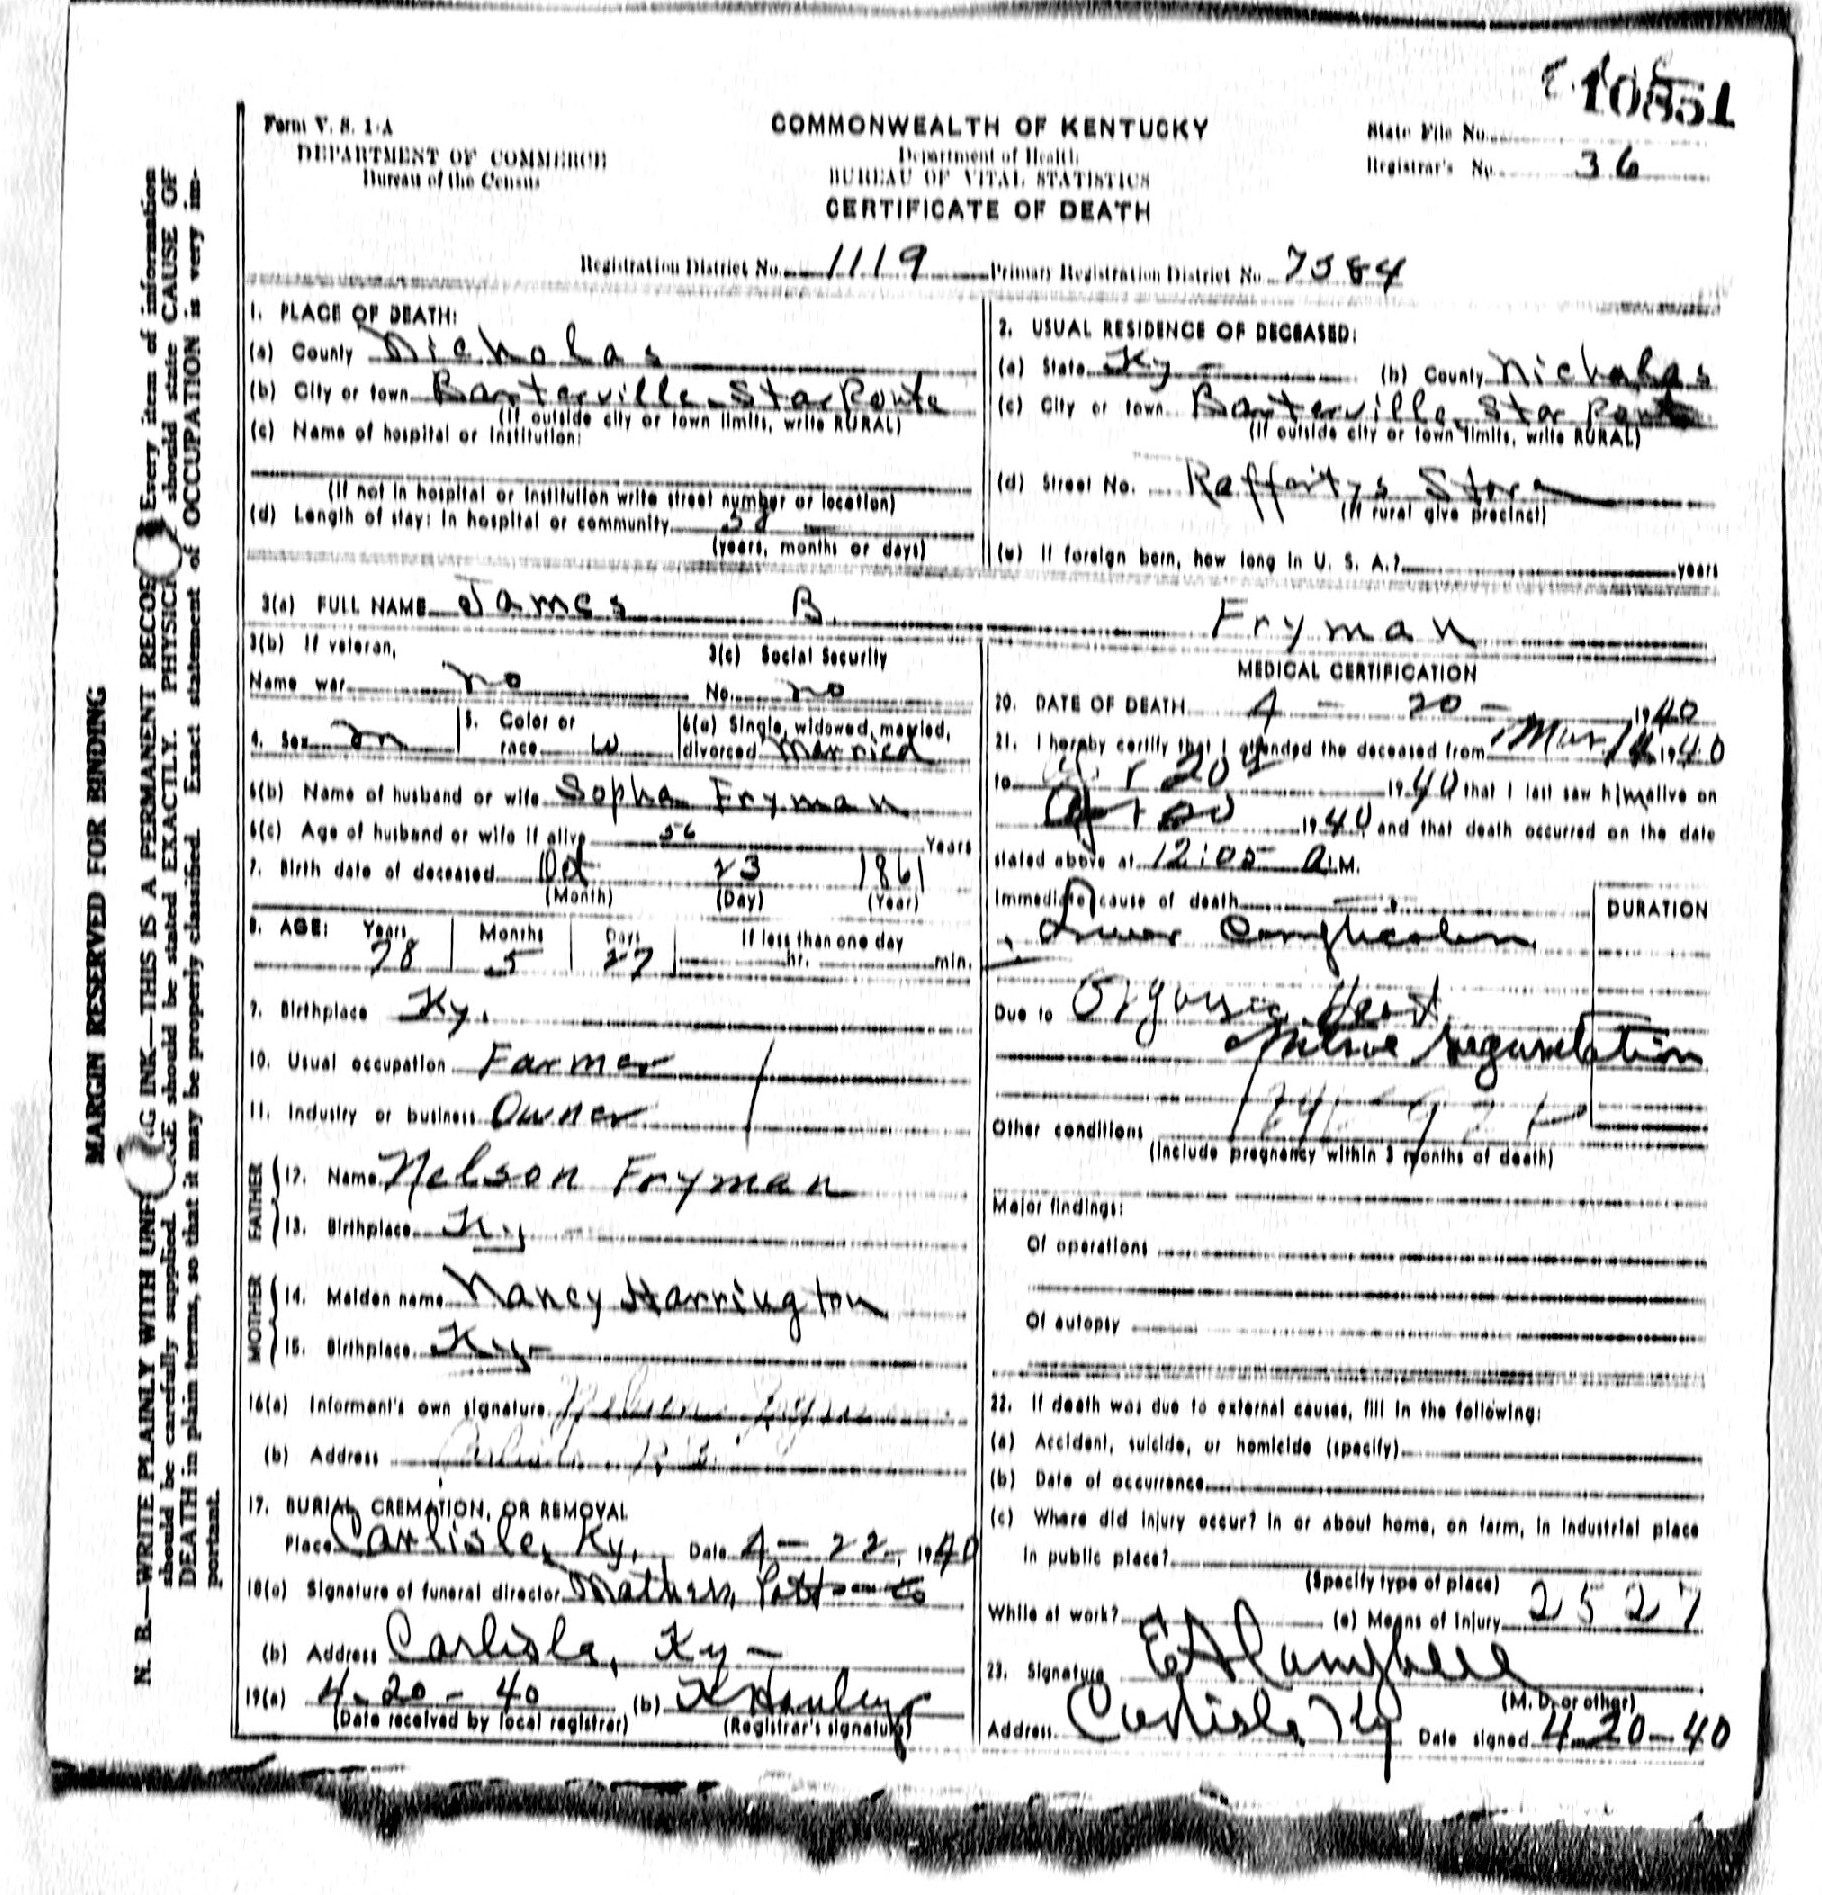 10851
Form V. S. 1-A
DEPARTMENT OF COMMERCE
Bureau of the Census
COMMONWEALTH OF KENTUCKY
Department of Health
BUREAU OF VITAL STATISTICS
CERTIFICATE OF DEATH
State File No.
Registrar's No. 36
Registration District No. 1119 Primary Registration District No. 7384
MARGIN RESERVED FOR BINDING
N. B.—WRITE PLAINLY WITH UNF G INK—THIS IS A PERMANENT RECOR Every item of information
should be carefully supplied. AGE should be stated EXACTLY. PHYSICI should state CAUSE OF
DEATH in plain terms, so that it may be properly classified. Exact statement of OCCUPATION is very im-
portant.
1. PLACE OF DEATH:
(a) County Nicholas
(b) City or town Barterville Star Route
(If outside city or town limits, write RURAL)
(c) Name of hospital or institution:
(If not in hospital or institution write street number or location)
(d) Length of stay: In hospital or community
(years, months or days)
2. USUAL RESIDENCE OF DECEASED:
(a) State Ky - (b) County Nicholas
(c) City or town Barterville Star Route
(If outside city or town limits, write RURAL)
(d) Street No. Raffertys Store
(If rural give precinct)
(e) If foreign born, how long in U. S. A.? years
3(a) FULL NAME James B. Fryman
3(b) If veteran, 3(c) Social Security
Name war no No. no
4. Sex m 5. Color or race w 6(a) Single, widowed, married, divorced Married
6(b) Name of husband or wife Sopha Fryman
6(c) Age of husband or wife if alive 56 Years
7. Birth date of deceased Oct 23 1861
(Month) (Day) (Year)
8. AGE: Years Months Days If less than one day
78 5 27 hr. min.
9. Birthplace Ky.
10. Usual occupation Farmer
11. Industry or business Owner
FATHER
12. Name Nelson Fryman
13. Birthplace Ky -
MOTHER
14. Maiden name Nancy Harrington
15. Birthplace Ky -
16(a) Informant's own signature Nelson Fryman
(b) Address Carlisle
17. BURIAL, CREMATION, OR REMOVAL
Place Carlisle, Ky. Date 4-22-1940
18(a) Signature of funeral director
(b) Address Carlisle, Ky -
19(a) 4-20-40 (b)
(Date received by local registrar) (Registrar's signature)
MEDICAL CERTIFICATION
20. DATE OF DEATH 4 - 20 - 1940
21. I hereby certify that I attended the deceased from Mar 1940
to Apr 20 1940 that I last saw him alive on
Apr 20 1940 and that death occurred on the date
stated above at 12:05 A.M.
Immediate cause of death DURATION
Due to Organic Heart
Mitral regurgitation
Other conditions
(Include pregnancy within 3 months of death)
Major findings:
Of operations
Of autopsy
22. If death was due to external causes, fill in the following:
(a) Accident, suicide, or homicide (specify)
(b) Date of occurrence
(c) Where did injury occur? In or about home, on farm, in industrial place
in public place?
(Specify type of place)
While at work? (e) Means of Injury 2527
23. Signature E A Campbell
(M. D. or other)
Address Carlisle Ky Date signed 4-20-40